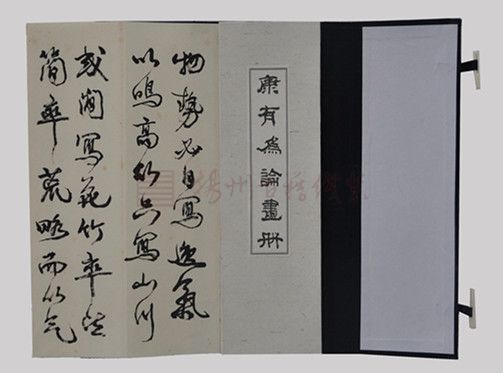 康有為論畫册
物勢必自寫逸氣
以鳴高故只寫山川
或間寫花竹率皆
簡率荒略而以气
揚州古籍線裝